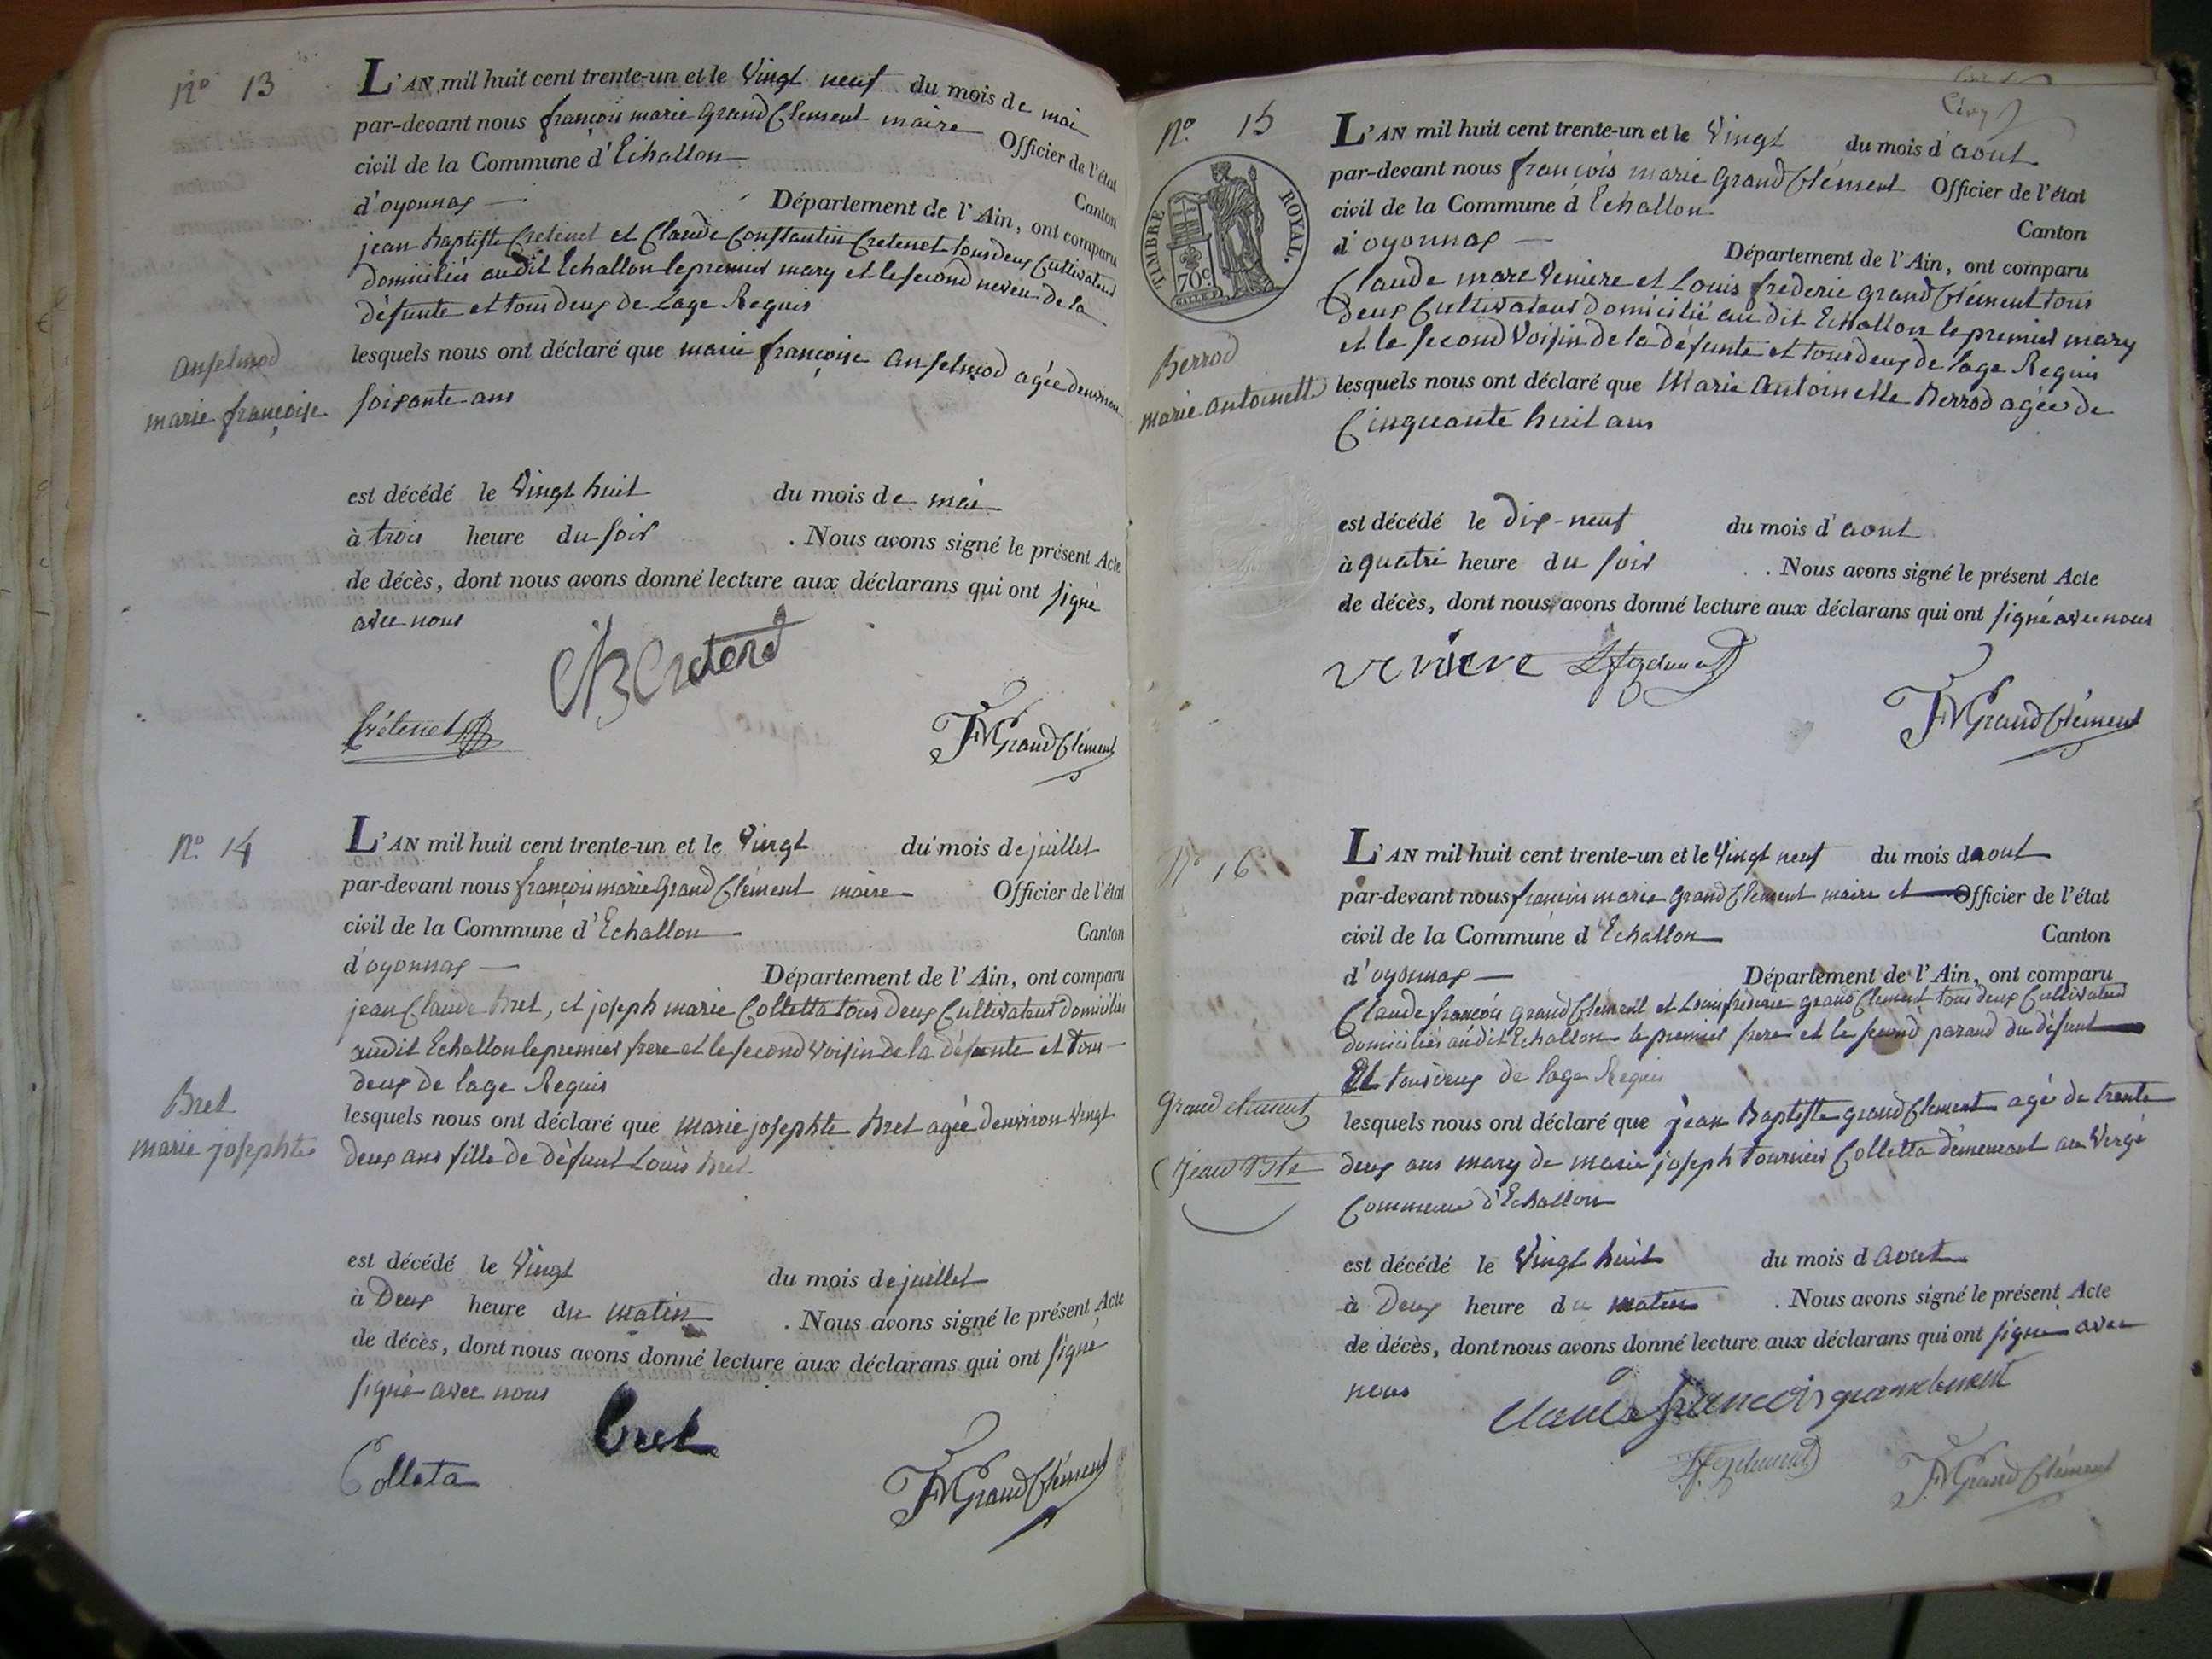 No 13
L'AN mil huit cent trente-un et le Vingt neuf du mois de mai
par-devant nous françois marie Grand Clement maire Officier de l'état
civil de la Commune d'Echallon Canton
d'oyonnax Département de l'Ain, ont comparu
jean Baptiste Cretenet et Claude Constantin Cretenet tous deux Cultivateurs
domiciliés audit Echallon le premier mary et le second neveu de la
défunte et tous deux de Lage Requis
Anselmod
marie françoise
lesquels nous ont déclaré que marie françoise Anselmod agée denviron
soixante ans
est décédé le Vingt huit du mois de mai
à trois heure du soir . Nous avons signé le présent Acte
de décès, dont nous avons donné lecture aux déclarans qui ont signé
avec nous
Crétenet
FMGrandClément
No. 14
L'AN mil huit cent trente-un et le Vingt du mois de juillet
par-devant nous françois marie Grand Clément maire Officier de l'état
civil de la Commune d'Echallon Canton
d'oyonnax Département de l'Ain, ont comparu
jean Claude Bret, et joseph marie Colletta tous deux Cultivateurs Domiciliés
audit Echallon le premier frere et le second Voisin de la défunte et tous
deux de lage Requis
Bret
marie josephte
lesquels nous ont déclaré que marie josephte Bret agée denviron Vingt
deux ans fille de défunt Louis Bret
est décédé le Vingt du mois de juillet
à Deux heure du matin . Nous avons signé le présent Acte
de décès, dont nous avons donné lecture aux déclarans qui ont signé
signé avec nous
bret
Colleta
FMGrandClément
No. 15
TIMBRE ROYAL.
70c.
L'AN mil huit cent trente-un et le Vingt du mois d'aout
par-devant nous françois marie Grand Clément Officier de l'état
civil de la Commune d Echallon Canton
d'oyonnax Département de l'Ain, ont comparu
Claude marc Veniere et Louis frederic Grand Clément tous
deux Cultivateurs domicilié audit Echallon le premier mary
et le second Voisin de la défunte et tous deux de lage Requis
Berrod
marie antoinette
lesquels nous ont déclaré que Marie Antoinette Berrod agée de
Cinquante huit ans
est décédé le dix-neuf du mois d'aout
à quatre heure du soir . Nous avons signé le présent Acte
de décès, dont nous avons donné lecture aux déclarans qui ont signé avec nous
FMGrandClément
No 16
L'AN mil huit cent trente-un et le Vingt neuf du mois daout
par-devant nous françois marie Grand Clement maire et Officier de l'état
civil de la Commune d Echallon Canton
d'oyonnax Département de l'Ain, ont comparu
Claude françois Grand Clement et Louis frederic Grand Clement tous deux Cultivateurs
domiciliés audit Echallon le premier frere et le second parand du défunt
Et tous deux de lage Requis
Grand clement
Jean Bte
lesquels nous ont déclaré que jean Baptiste grand Clement agé de trente
deux ans mary de marie joseph tournier Colletta demeurant au Vergé
Commune d'Echallon
est décédé le Vingt huit du mois d aout
à Deux heure du matin . Nous avons signé le présent Acte
de décès, dont nous avons donné lecture aux déclarans qui ont signé avec
nous
claude francois grandclement
FMGrandClément